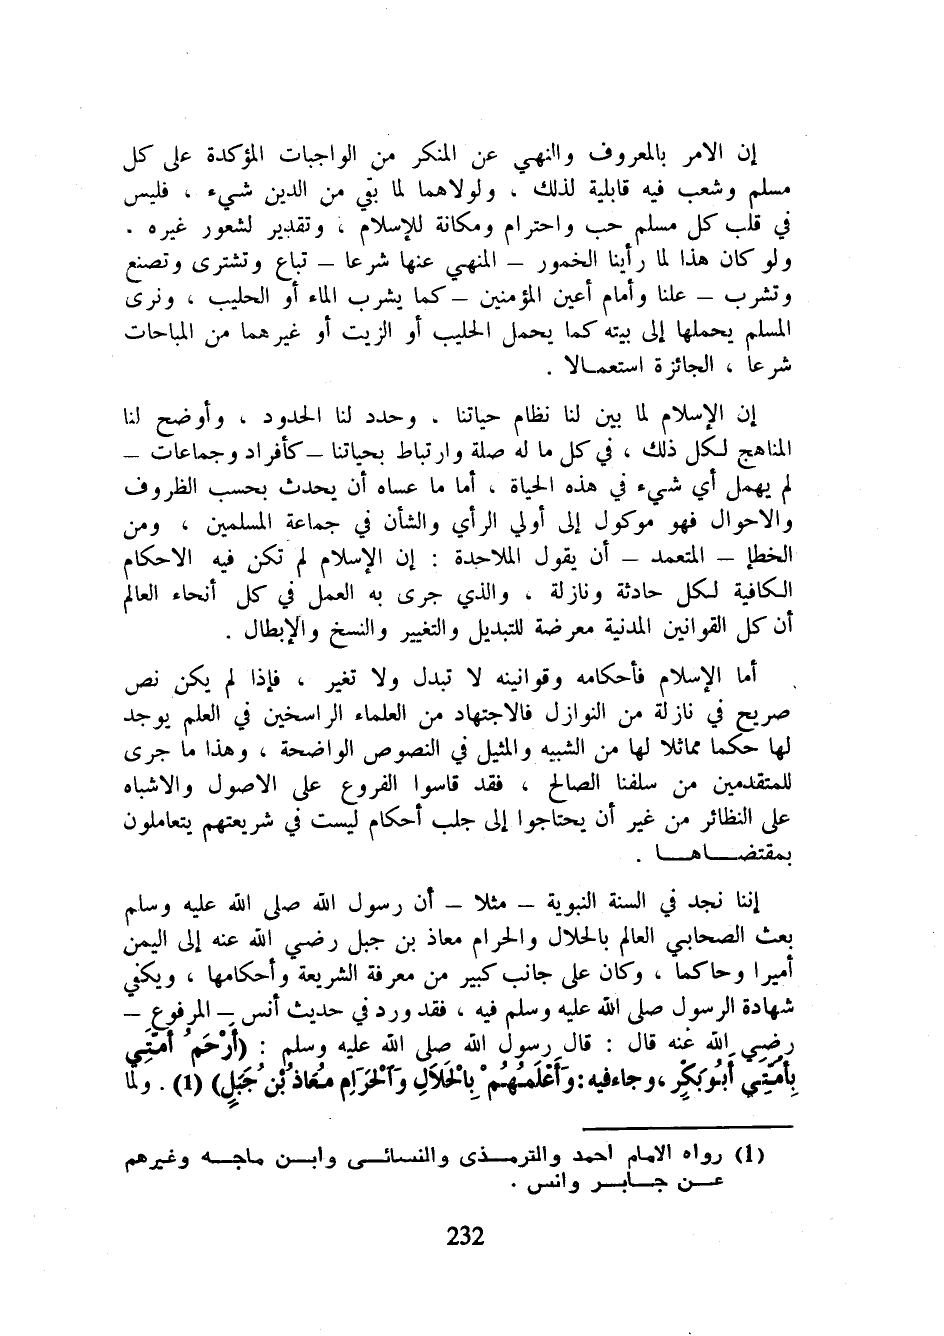 إن الامر بالمعروف والنهي عن المنكر من الواجبات المؤكدة على كل
مسلم وشعب فيه قابلية لذلك ، ولولاهما لما بقي من الدين شيء ، فليس
في قلب كل مسلم حب واحترام ومكانة للإسلام ، وتقدير لشعور غيره .
ولو كان هذا لما رأينا الخمور – المنهي عنها شرعا – تباع وتشترى وتصنع
وتشرب – علنا وأمام أعين المؤمنين – كما يشرب الماء أو الحليب ، ونرى
المسلم يحملها إلى بيته كما يحمل الحليب أو الزيت أو غيرهما من المباحات
شرعا ، الجائزة استعمالا .
إن الإسلام لما بين لنا نظام حياتنا . وحدد لنا الحدود ، وأوضح لنا
المناهج لكل ذلك ، في كل ما له صلة وارتباط بحياتنا – كأفراد وجماعات –
لم يهمل أي شيء في هذه الحياة ، أما ما عساه أن يحدث بحسب الظروف
والاحوال فهو موكول إلى أولي الرأي والشأن في جماعة المسلمين ، ومن
الخطإ – المتعمد – أن يقول الملاحدة : إن الإسلام لم تكن فيه الاحكام
الكافية لكل حادثة ونازلة ، والذي جرى به العمل في كل أنحاء العالم
أن كل القوانين المدنية معرضة للتبديل والتغيير والنسخ والإبطال .
أما الإسلام فأحكامه وقوانينه لا تبدل ولا تغير ، فإذا لم يكن نص
صريح في نازلة من النوازل فالاجتهاد من العلماء الراسخين في العلم يوجد
لها حكما مماثلا لها من الشبيه والمثيل في النصوص الواضحة ، وهذا ما جرى
للمتقدمين من سلفنا الصالح ، فقد قاسوا الفروع على الاصول والاشباه
على النظائر من غير أن يحتاجوا إلى جلب أحكام ليست في شريعتهم يتعاملون
بمقتضاها .
إننا نجد في السنة النبوية – مثلا – أن رسول الله صلى الله عليه وسلم
بعث الصحابي العالم بالحلال والحرام معاذ بن جبل رضي الله عنه إلى اليمن
أميرا وحاكما ، وكان على جانب كبير من معرفة الشريعة وأحكامها ، ويكفي
شهادة الرسول صلى الله عليه وسلم فيه ، فقد ورد في حديث أنس – المرفوع –
رضي الله عنه قال : قال رسول الله صلى الله عليه وسلم : (أَرْحَمُ أُمَّتِي
بِأُمَّتِي أَبُو بَكْرٍ ، وجاء فيه : وَأَعْلَمُهُمْ بِالْحَلَالِ وَالْحَرَامِ مُعَاذُ بْنُ جَبَلٍ) (1) . ولما
(1) رواه الامام احمد والترمذى والنسائى وابن ماجه وغيرهم
عن جابر وانس .
232